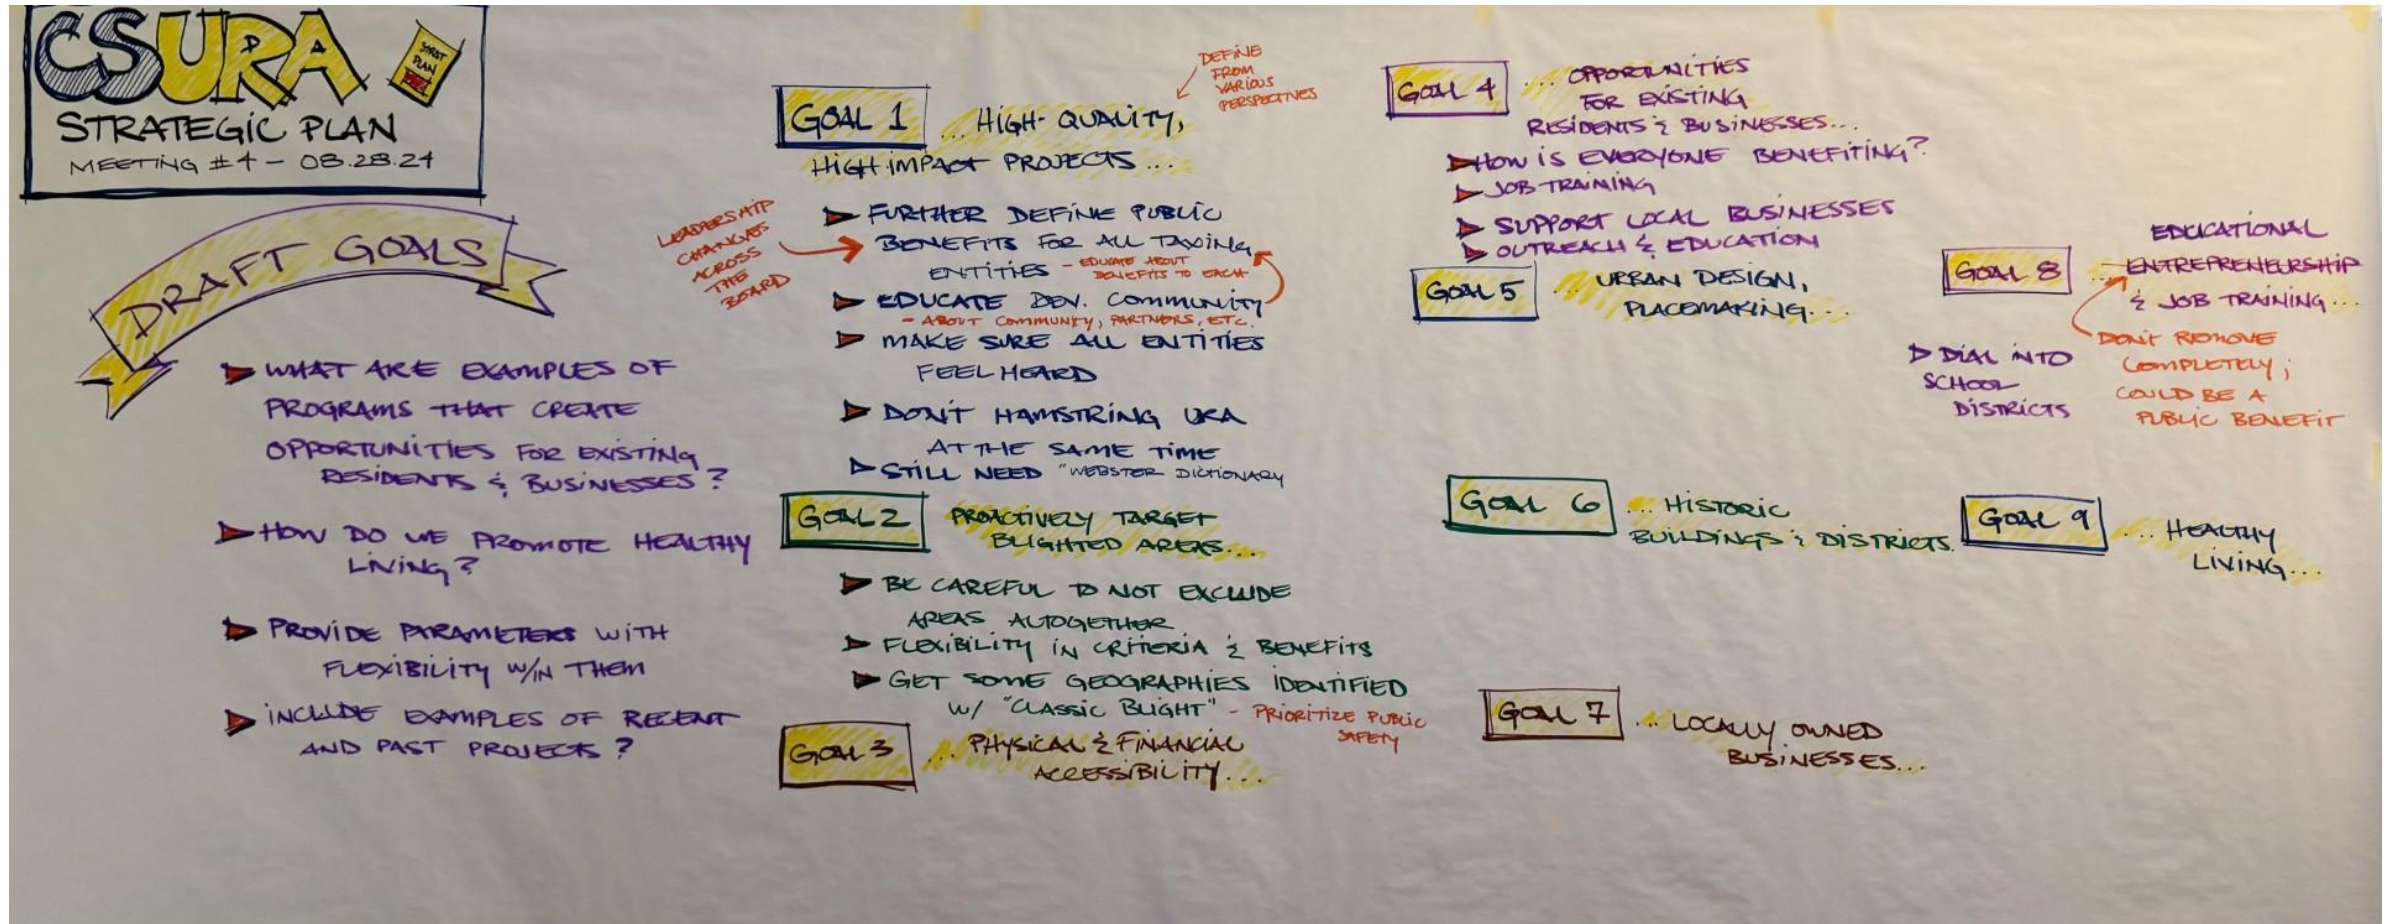 CSURA
STRAT
PLAN
STRATEGIC PLAN
MEETING #4 - 08.28.24
DRAFT GOALS
WHAT ARE EXAMPLES OF
PROGRAMS THAT CREATE
OPPORTUNITIES FOR EXISTING
RESIDENTS & BUSINESSES?
HOW DO WE PROMOTE HEALTHY
LIVING?
PROVIDE PARAMETERS WITH
FLEXIBILITY W/IN THEM
INCLUDE EXAMPLES OF RECENT
AND PAST PROJECTS?
GOAL 1 ... HIGH-QUALITY,
HIGH IMPACT PROJECTS...
DEFINE
FROM
VARIOUS
PERSPECTIVES
FURTHER DEFINE PUBLIC
BENEFITS FOR ALL TAXING
ENTITIES - EDUCATE ABOUT
BENEFITS TO EACH
LEADERSHIP
CHANGES
ACROSS
THE
BOARD
EDUCATE DEV. COMMUNITY
- ABOUT COMMUNITY, PARTNERS, ETC.
MAKE SURE ALL ENTITIES
FEEL HEARD
DON'T HAMSTRING URA
AT THE SAME TIME
STILL NEED "WEBSTER DICTIONARY
GOAL 2 PROACTIVELY TARGET
BLIGHTED AREAS...
BE CAREFUL TO NOT EXCLUDE
AREAS ALTOGETHER
FLEXIBILITY IN CRITERIA & BENEFITS
GET SOME GEOGRAPHIES IDENTIFIED
W/ "CLASSIC BLIGHT" - PRIORITIZE PUBLIC
SAFETY
GOAL 3 .. PHYSICAL & FINANCIAL
ACCESSIBILITY...
GOAL 4 ... OPPORTUNITIES
FOR EXISTING
RESIDENTS & BUSINESSES...
HOW IS EVERYONE BENEFITING?
JOB TRAINING
SUPPORT LOCAL BUSINESSES
OUTREACH & EDUCATION
GOAL 5 ... URBAN DESIGN,
PLACEMAKING...
GOAL 6 ... HISTORIC
BUILDINGS & DISTRICTS.
GOAL 7 ... LOCALLY OWNED
BUSINESSES...
EDUCATIONAL
GOAL 8 ... ENTREPRENEURSHIP
& JOB TRAINING...
DIAL INTO
SCHOOL
DISTRICTS
DON'T REMOVE
COMPLETELY;
COULD BE A
PUBLIC BENEFIT
GOAL 9 ... HEALTHY
LIVING...